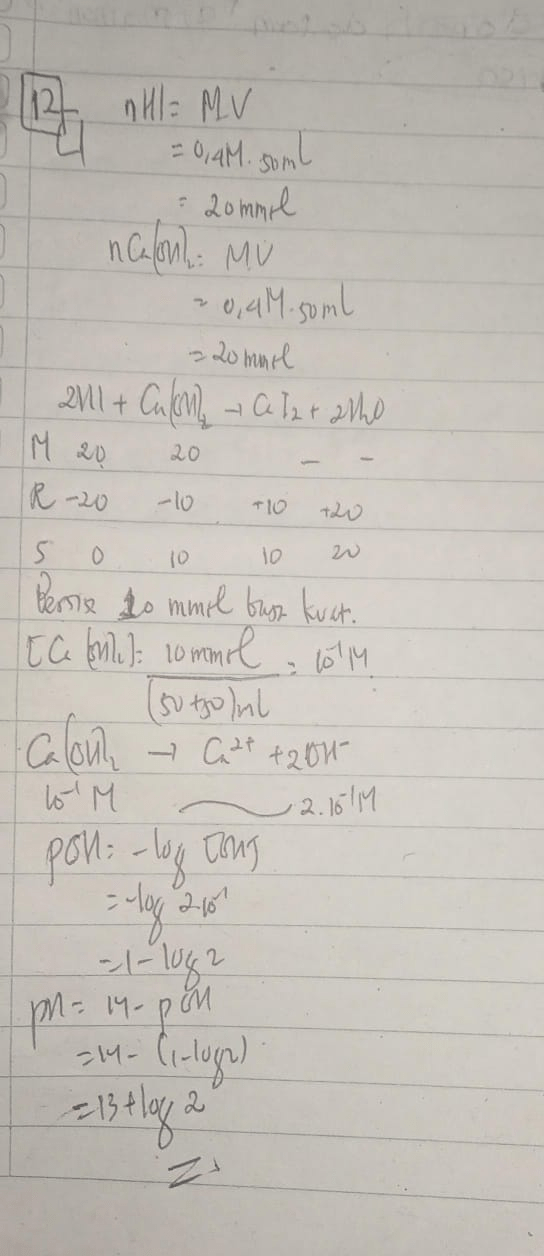 12. nHI = MV
= 0,4M . 50 ml
= 20 mmol
nCa(OH)₂ = MV
= 0,4M . 50 ml
= 20 mmol
2HI + Ca(OH)₂ → CaI₂ + 2H₂O
M 20 20 - -
R -20 -10 +10 +20
S 0 10 10 20
10 mmol basa kuat.
[Ca(OH)₂] = 10 mmol = 10⁻¹ M
(50+50) ml
Ca(OH)₂ → Ca²⁺ + 2OH⁻
10⁻¹ M 2.10⁻¹ M
pOH = -log [OH⁻]
= -log 2.10⁻¹
= 1 - log 2
pH = 14 - pOH
= 14 - (1-log2)
= 13 + log 2